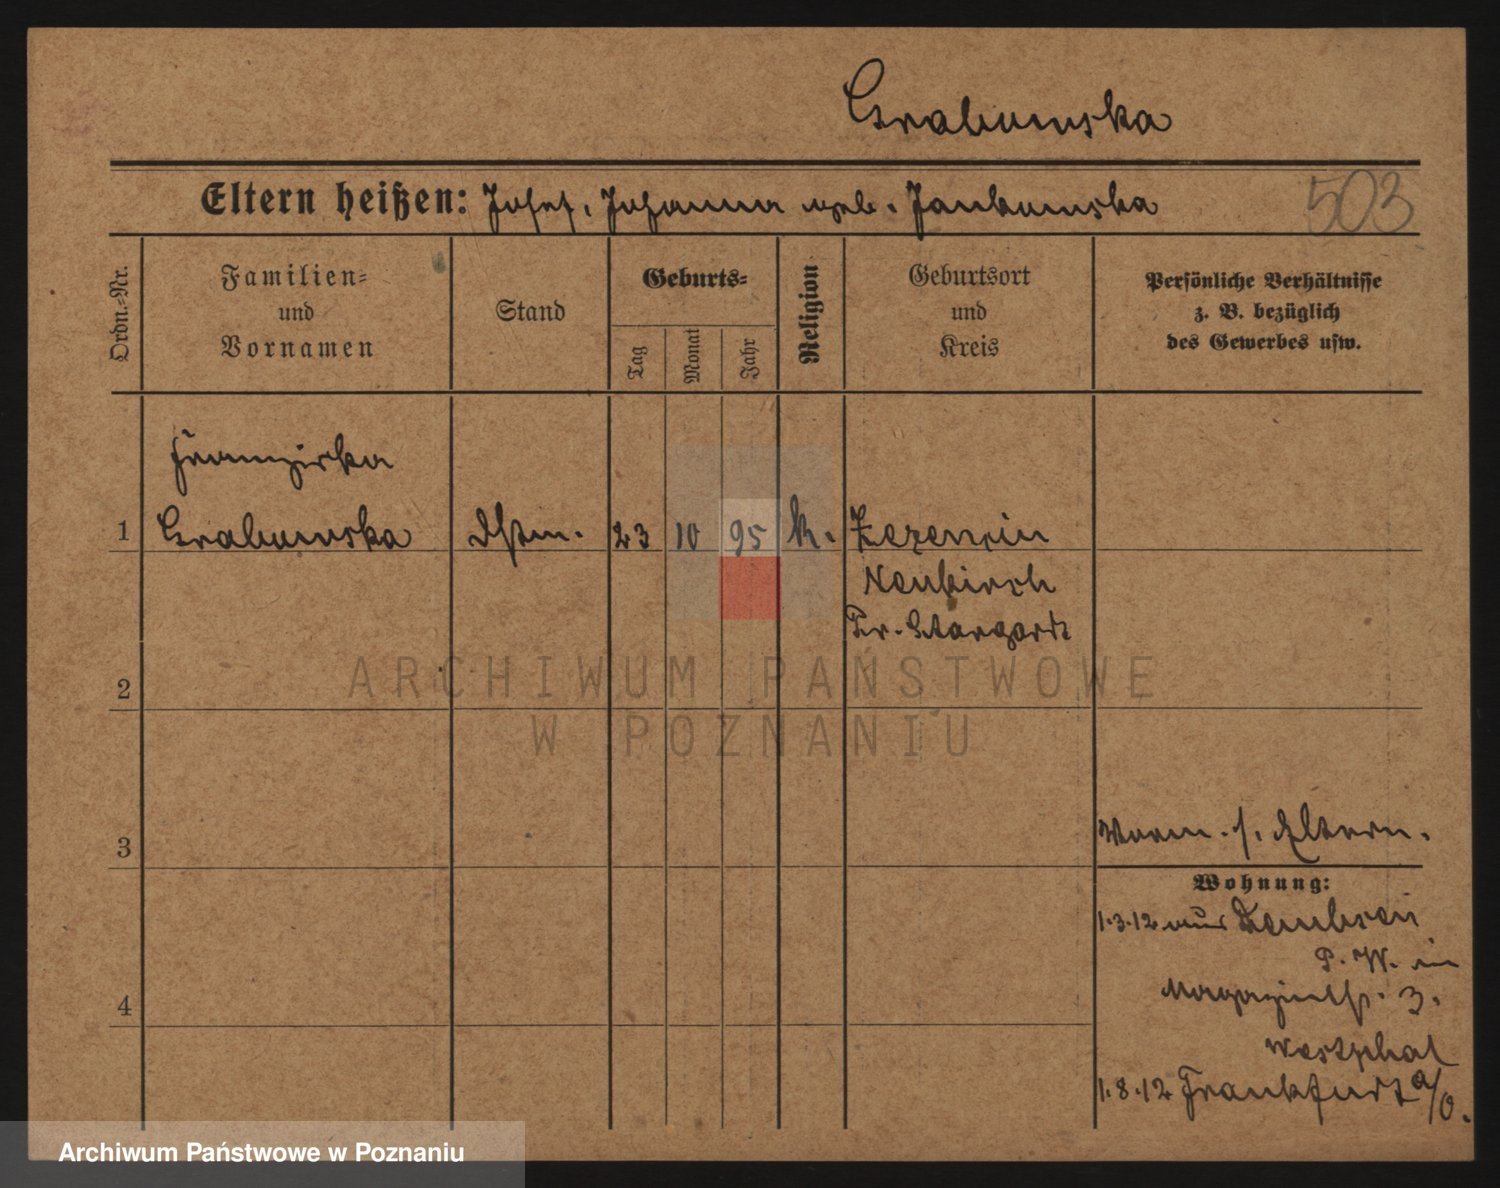 Grabowska
Eltern heißen: Josef, Johanna geb. Jankowska
503
Ordn.-Nr.
Familien-
und
Vornamen
Stand
Geburts-
Tag
Monat
Jahr
Religion
Geburtsort
und
Kreis
Persönliche Verhältnisse
z. B. bezüglich
des Gewerbes usw.
Franziska
1 Grabowska Dstm. 23 10 95 k.
Neukirch
Pr. Stargardt
ARCHIWUM PAŃSTWOWE
W POZNANIU
2
3
Verm. s. Eltern.
Wohnung:
1.3.12 aus Dembsen
P. W. in
Magazinstr. 3.
Westphal
4
1.8.12 Frankfurt a/O.
Archiwum Państwowe w Poznaniu